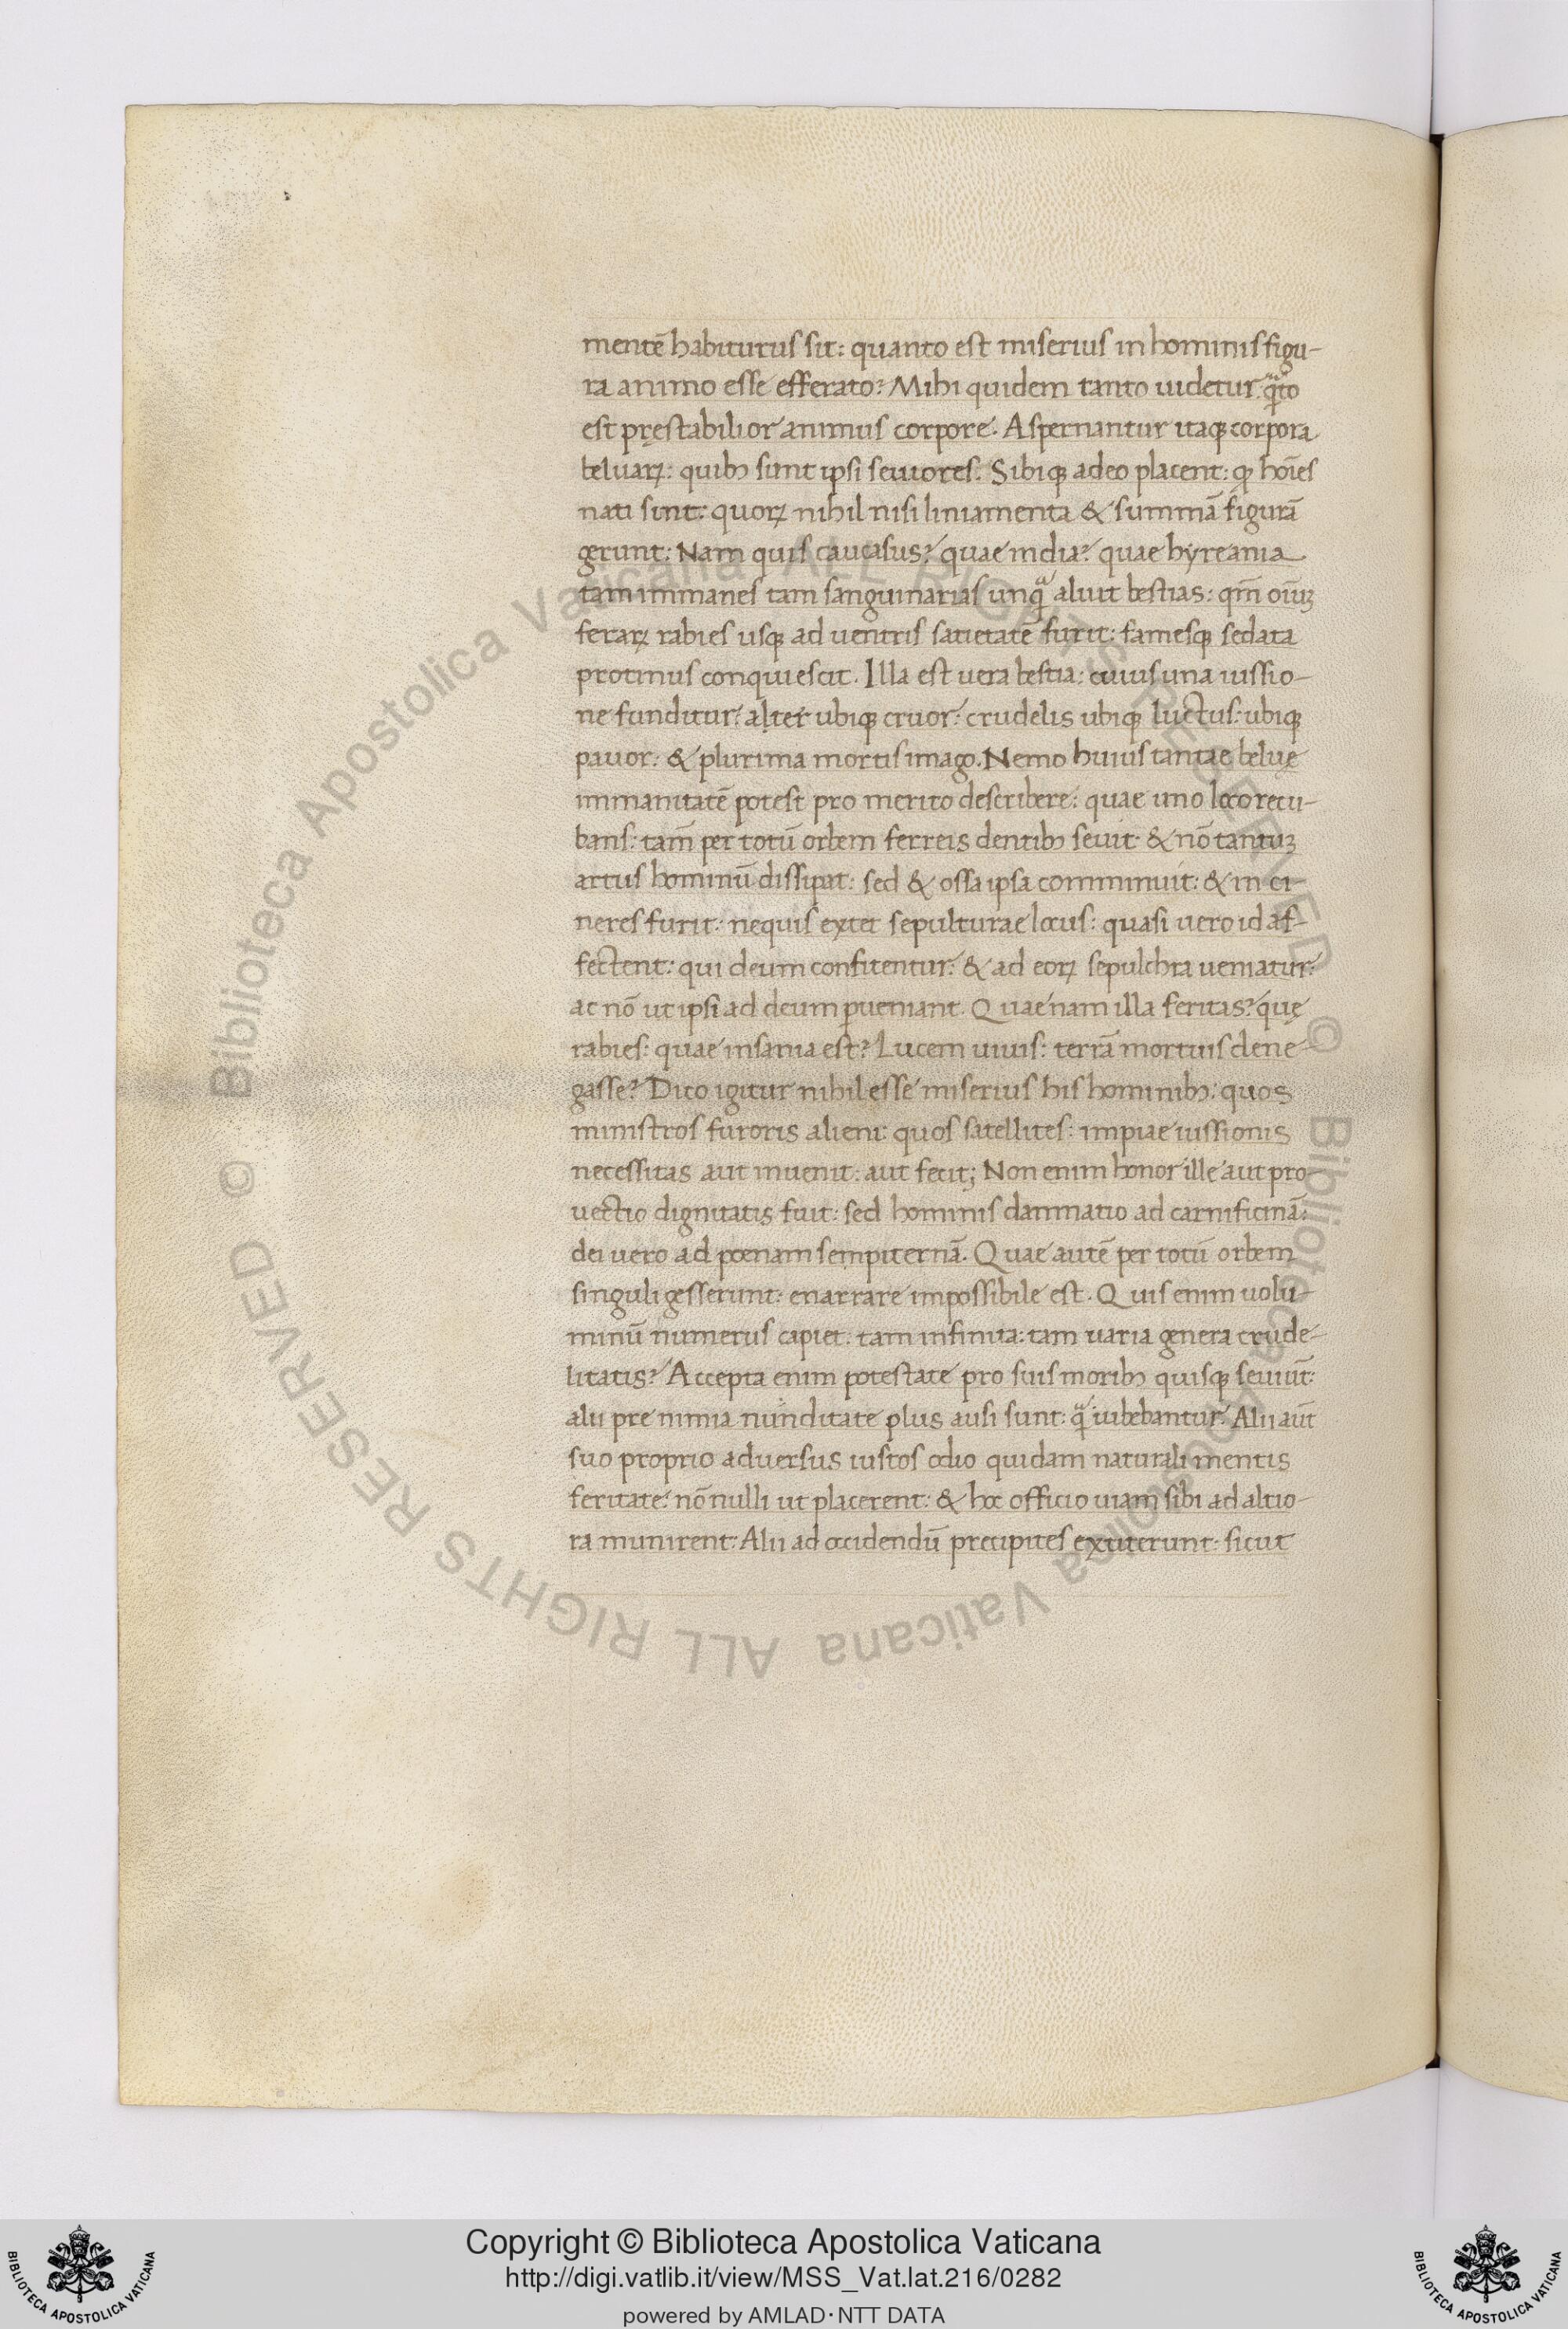 mentē habiturus sit: quanto est miserius in hominis figu-
ra animo esse efferato? Mihi quidem tanto uidetur q̃to
est pręstabilior animus corpore. Aspernantur itaqꝫ corpora
beluaꝝ: quibꝫ sunt ipsi seuiores. Sibiqꝫ adeo placent: ꝙ hoīes
nati sint: quoꝝ nihil nisi liniamenta & summā figurā
gerunt: Nam quis caucasus? quae india? quae hyreania
tam immanes tam sanguinarias unq̃ aluit bestias: qm̄ oīuꝫ
feraꝝ rabies usqꝫ ad uentris satietatē furit: famesqꝫ sedata
protinus conquiescit. Illa est uera bestia: cuius una iussio-
ne funditur: alter ubiqꝫ cruor: crudelis ubiqꝫ luctus: ubiqꝫ
pauor: & plurima mortis imago. Nemo huius tantae beluę
immanitatē potest pro merito describere: quae uno loco recu-
bans: tam̄ per totū orbem ferreis dentibꝫ seuit & nō tantuꝫ
artus hominū dissipat: sed & ossa ipsa comminuit: & in ci-
neres furit: nequis extet sepulturae locus: quasi uero id af-
fectent: qui deum confitentur: & ad eoꝝ sepulchra ueniatur:
ac nō ut ipsi ad deum ꝑueniant. Quae nam illa feritas? quę
rabies: quae insania est? Lucem uiuis: terrā mortuis dene-
gasse? Dico igitur nihil esse miserius his hominibꝫ: quos
ministros furoris alieni: quos satellites: impiae iussionis
necessitas aut inuenit: aut fecit; Non enim honor ille aut pro-
uectio dignitatis fuit: sed hominis damnatio ad carnificinā:
dei uero ad poenam sempiternā. Quae autē per totū orbem
singuli gesserunt: enarrare impossibile est. Quis enim uolu-
minū numerus capiet: tam infinita: tam uaria genera crude-
litatis? Accepta enim potestate pro suis moribꝫ quisqꝫ seuiūt:
alii pre nimia nūnditate plus ausi sunt: q̃ iubebantur. Alii aūt
suo proprio aduersus iustos odio quidam naturali mentis
feritate: nōnulli ut placerent: & hoc officio uiam sibi ad altio-
ra munirent: Alii ad occidendū precipites extiterunt: sicut
Copyright © Biblioteca Apostolica Vaticana
http://digi.vatlib.it/view/MSS_Vat.lat.216/0282
powered by AMLAD·NTT DATA
BIBLIOTECA APOSTOLICA VATICANA
BIBLIOTECA APOSTOLICA VATICANA
© Biblioteca Apostolica Vaticana ALL RIGHTS RESERVED © Biblioteca Apostolica Vaticana ALL RIGHTS RESERVED